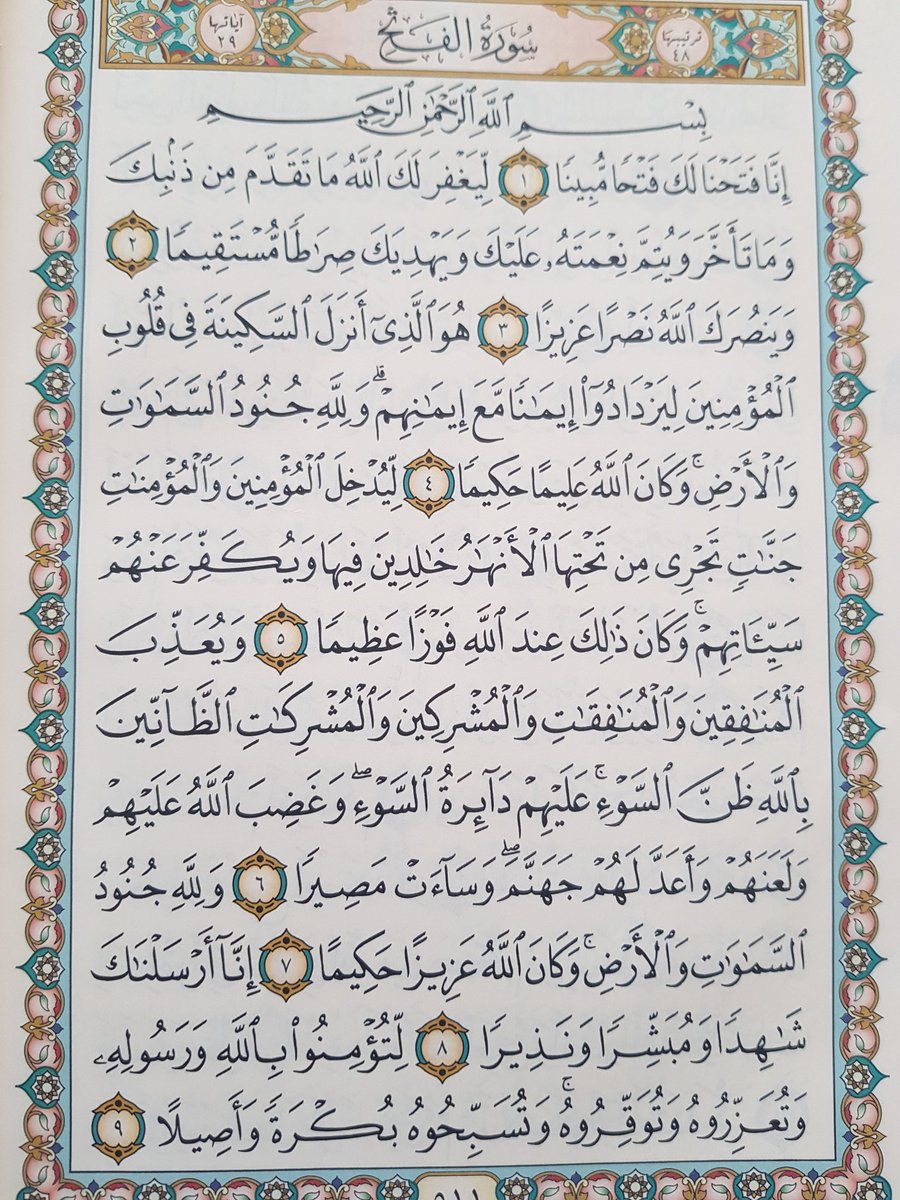 ترتيبها ٤٨ سُورَةُ الفَتْحِ آياتها ٢٩
بِسْمِ ٱللَّهِ ٱلرَّحْمَٰنِ ٱلرَّحِيمِ
إِنَّا فَتَحْنَا لَكَ فَتْحًا مُّبِينًا ١ لِّيَغْفِرَ لَكَ ٱللَّهُ مَا تَقَدَّمَ مِن ذَنۢبِكَ
وَمَا تَأَخَّرَ وَيُتِمَّ نِعْمَتَهُۥ عَلَيْكَ وَيَهْدِيَكَ صِرَٰطًا مُّسْتَقِيمًا ٢
وَيَنصُرَكَ ٱللَّهُ نَصْرًا عَزِيزًا ٣ هُوَ ٱلَّذِىٓ أَنزَلَ ٱلسَّكِينَةَ فِى قُلُوبِ
ٱلْمُؤْمِنِينَ لِيَزْدَادُوٓا۟ إِيمَٰنًا مَّعَ إِيمَٰنِهِمْ ۗ وَلِلَّهِ جُنُودُ ٱلسَّمَٰوَٰتِ
وَٱلْأَرْضِ ۚ وَكَانَ ٱللَّهُ عَلِيمًا حَكِيمًا ٤ لِّيُدْخِلَ ٱلْمُؤْمِنِينَ وَٱلْمُؤْمِنَٰتِ
جَنَّٰتٍ تَجْرِى مِن تَحْتِهَا ٱلْأَنْهَٰرُ خَٰلِدِينَ فِيهَا وَيُكَفِّرَ عَنْهُمْ
سَيِّـَٔاتِهِمْ ۚ وَكَانَ ذَٰلِكَ عِندَ ٱللَّهِ فَوْزًا عَظِيمًا ٥ وَيُعَذِّبَ
ٱلْمُنَٰفِقِينَ وَٱلْمُنَٰفِقَٰتِ وَٱلْمُشْرِكِينَ وَٱلْمُشْرِكَٰتِ ٱلظَّآنِّينَ
بِٱللَّهِ ظَنَّ ٱلسَّوْءِ ۚ عَلَيْهِمْ دَآئِرَةُ ٱلسَّوْءِ ۖ وَغَضِبَ ٱللَّهُ عَلَيْهِمْ
وَلَعَنَهُمْ وَأَعَدَّ لَهُمْ جَهَنَّمَ ۖ وَسَآءَتْ مَصِيرًا ٦ وَلِلَّهِ جُنُودُ
ٱلسَّمَٰوَٰتِ وَٱلْأَرْضِ ۚ وَكَانَ ٱللَّهُ عَزِيزًا حَكِيمًا ٧ إِنَّآ أَرْسَلْنَٰكَ
شَٰهِدًا وَمُبَشِّرًا وَنَذِيرًا ٨ لِّتُؤْمِنُوا۟ بِٱللَّهِ وَرَسُولِهِۦ
وَتُعَزِّرُوهُ وَتُوَقِّرُوهُ ۚ وَتُسَبِّحُوهُ بُكْرَةً وَأَصِيلًا ٩